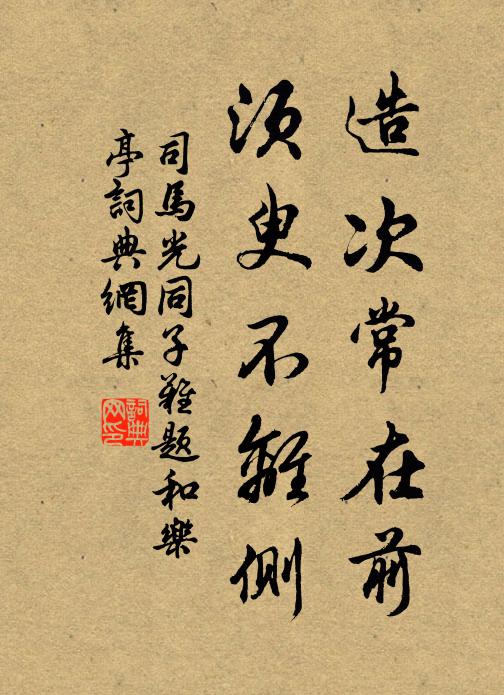 造次常在前
須臾不離側
司馬光同子難題和樂
亭詞典網集
詞典
网印